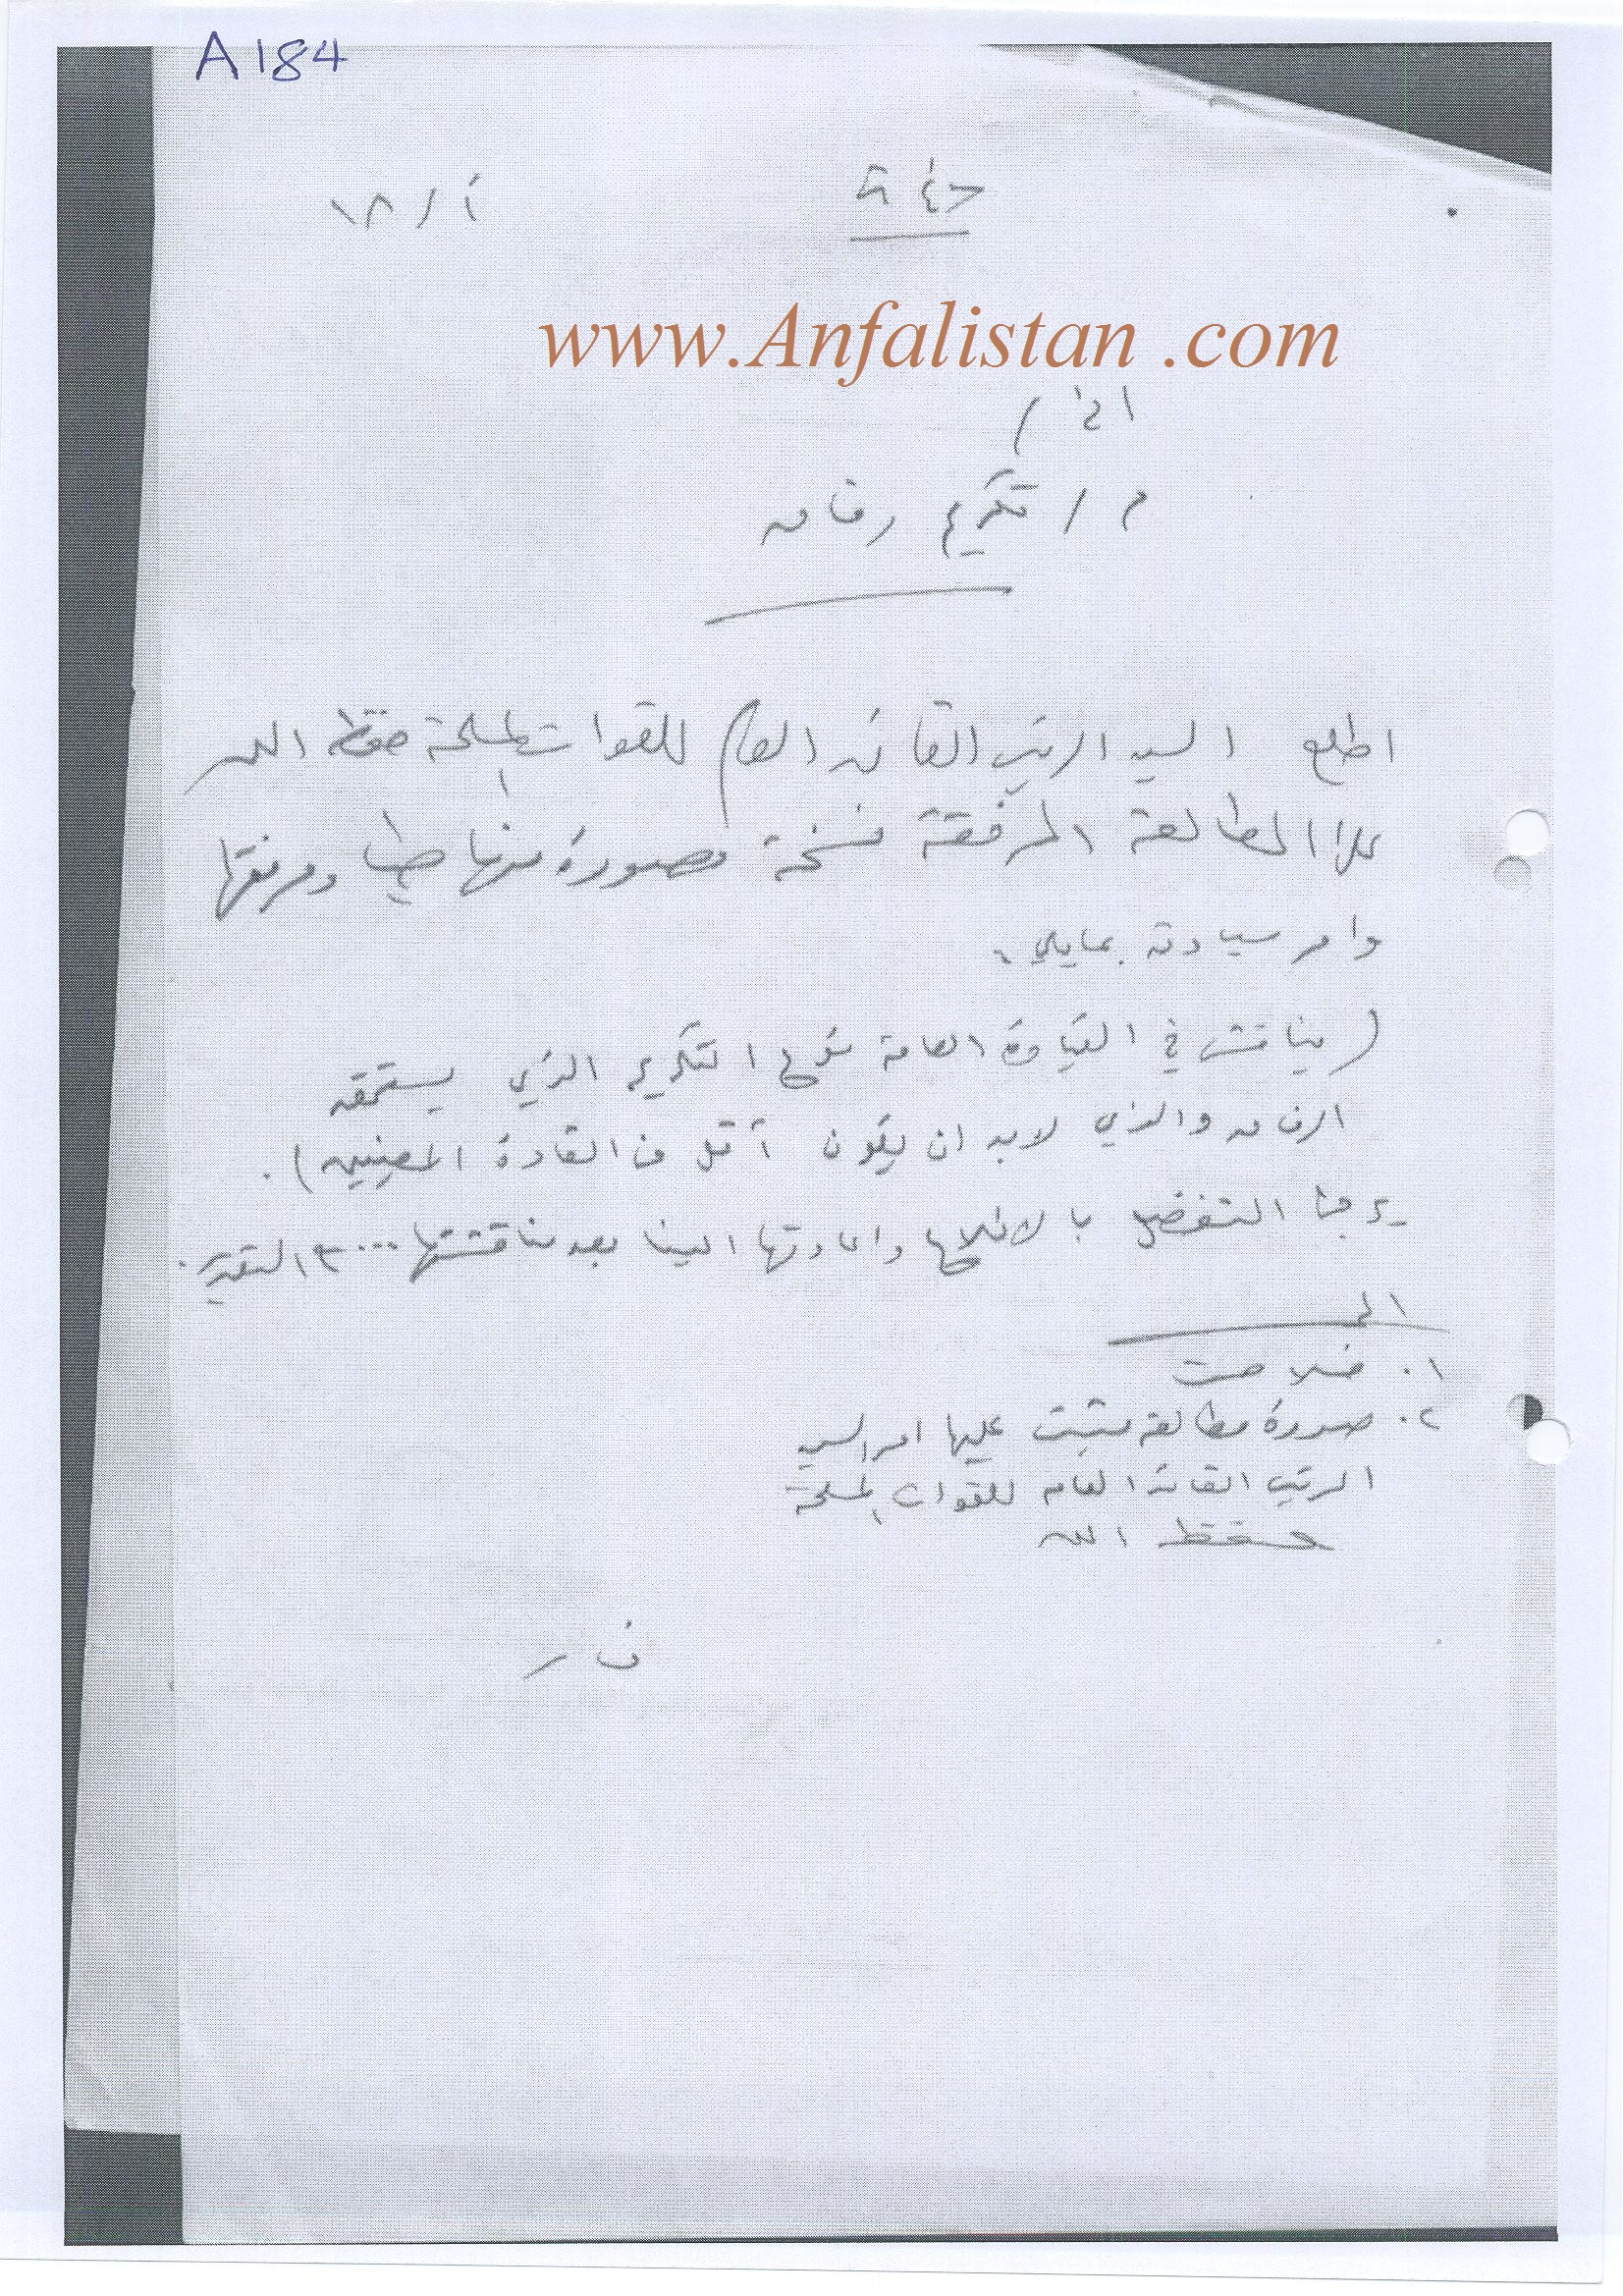 A 184
أ / ١٨
www.Anfalistan .com
م / تكريم رفاق
اطلع السيد الرئيس القائد العام للقوات المسلحة حفظه الله
على المطالعة المرفقة نسخة مصورة منها طيا ومرفقها
وامر سيادته بمايلي
(يناقش في القيادة العامة نوع التكريم الذي يستحقه
الرفاق والذي لابد ان يكون أقل من القادة المعنيين) .
يرجى التفضل بالاطلاع واعادتها الينا بعد مناقشتها ... مع التقدير .
١. خلاصة
٢. صورة مطالعة مثبت عليها امر السيد
الرئيس القائد العام للقوات المسلحة
حفظه الله